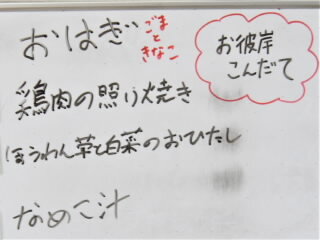 おはぎ
ごま
と
きなこ
お彼岸
こんだて
鶏肉の照り焼き
ほうれん草と白菜のおひたし
なめこ汁